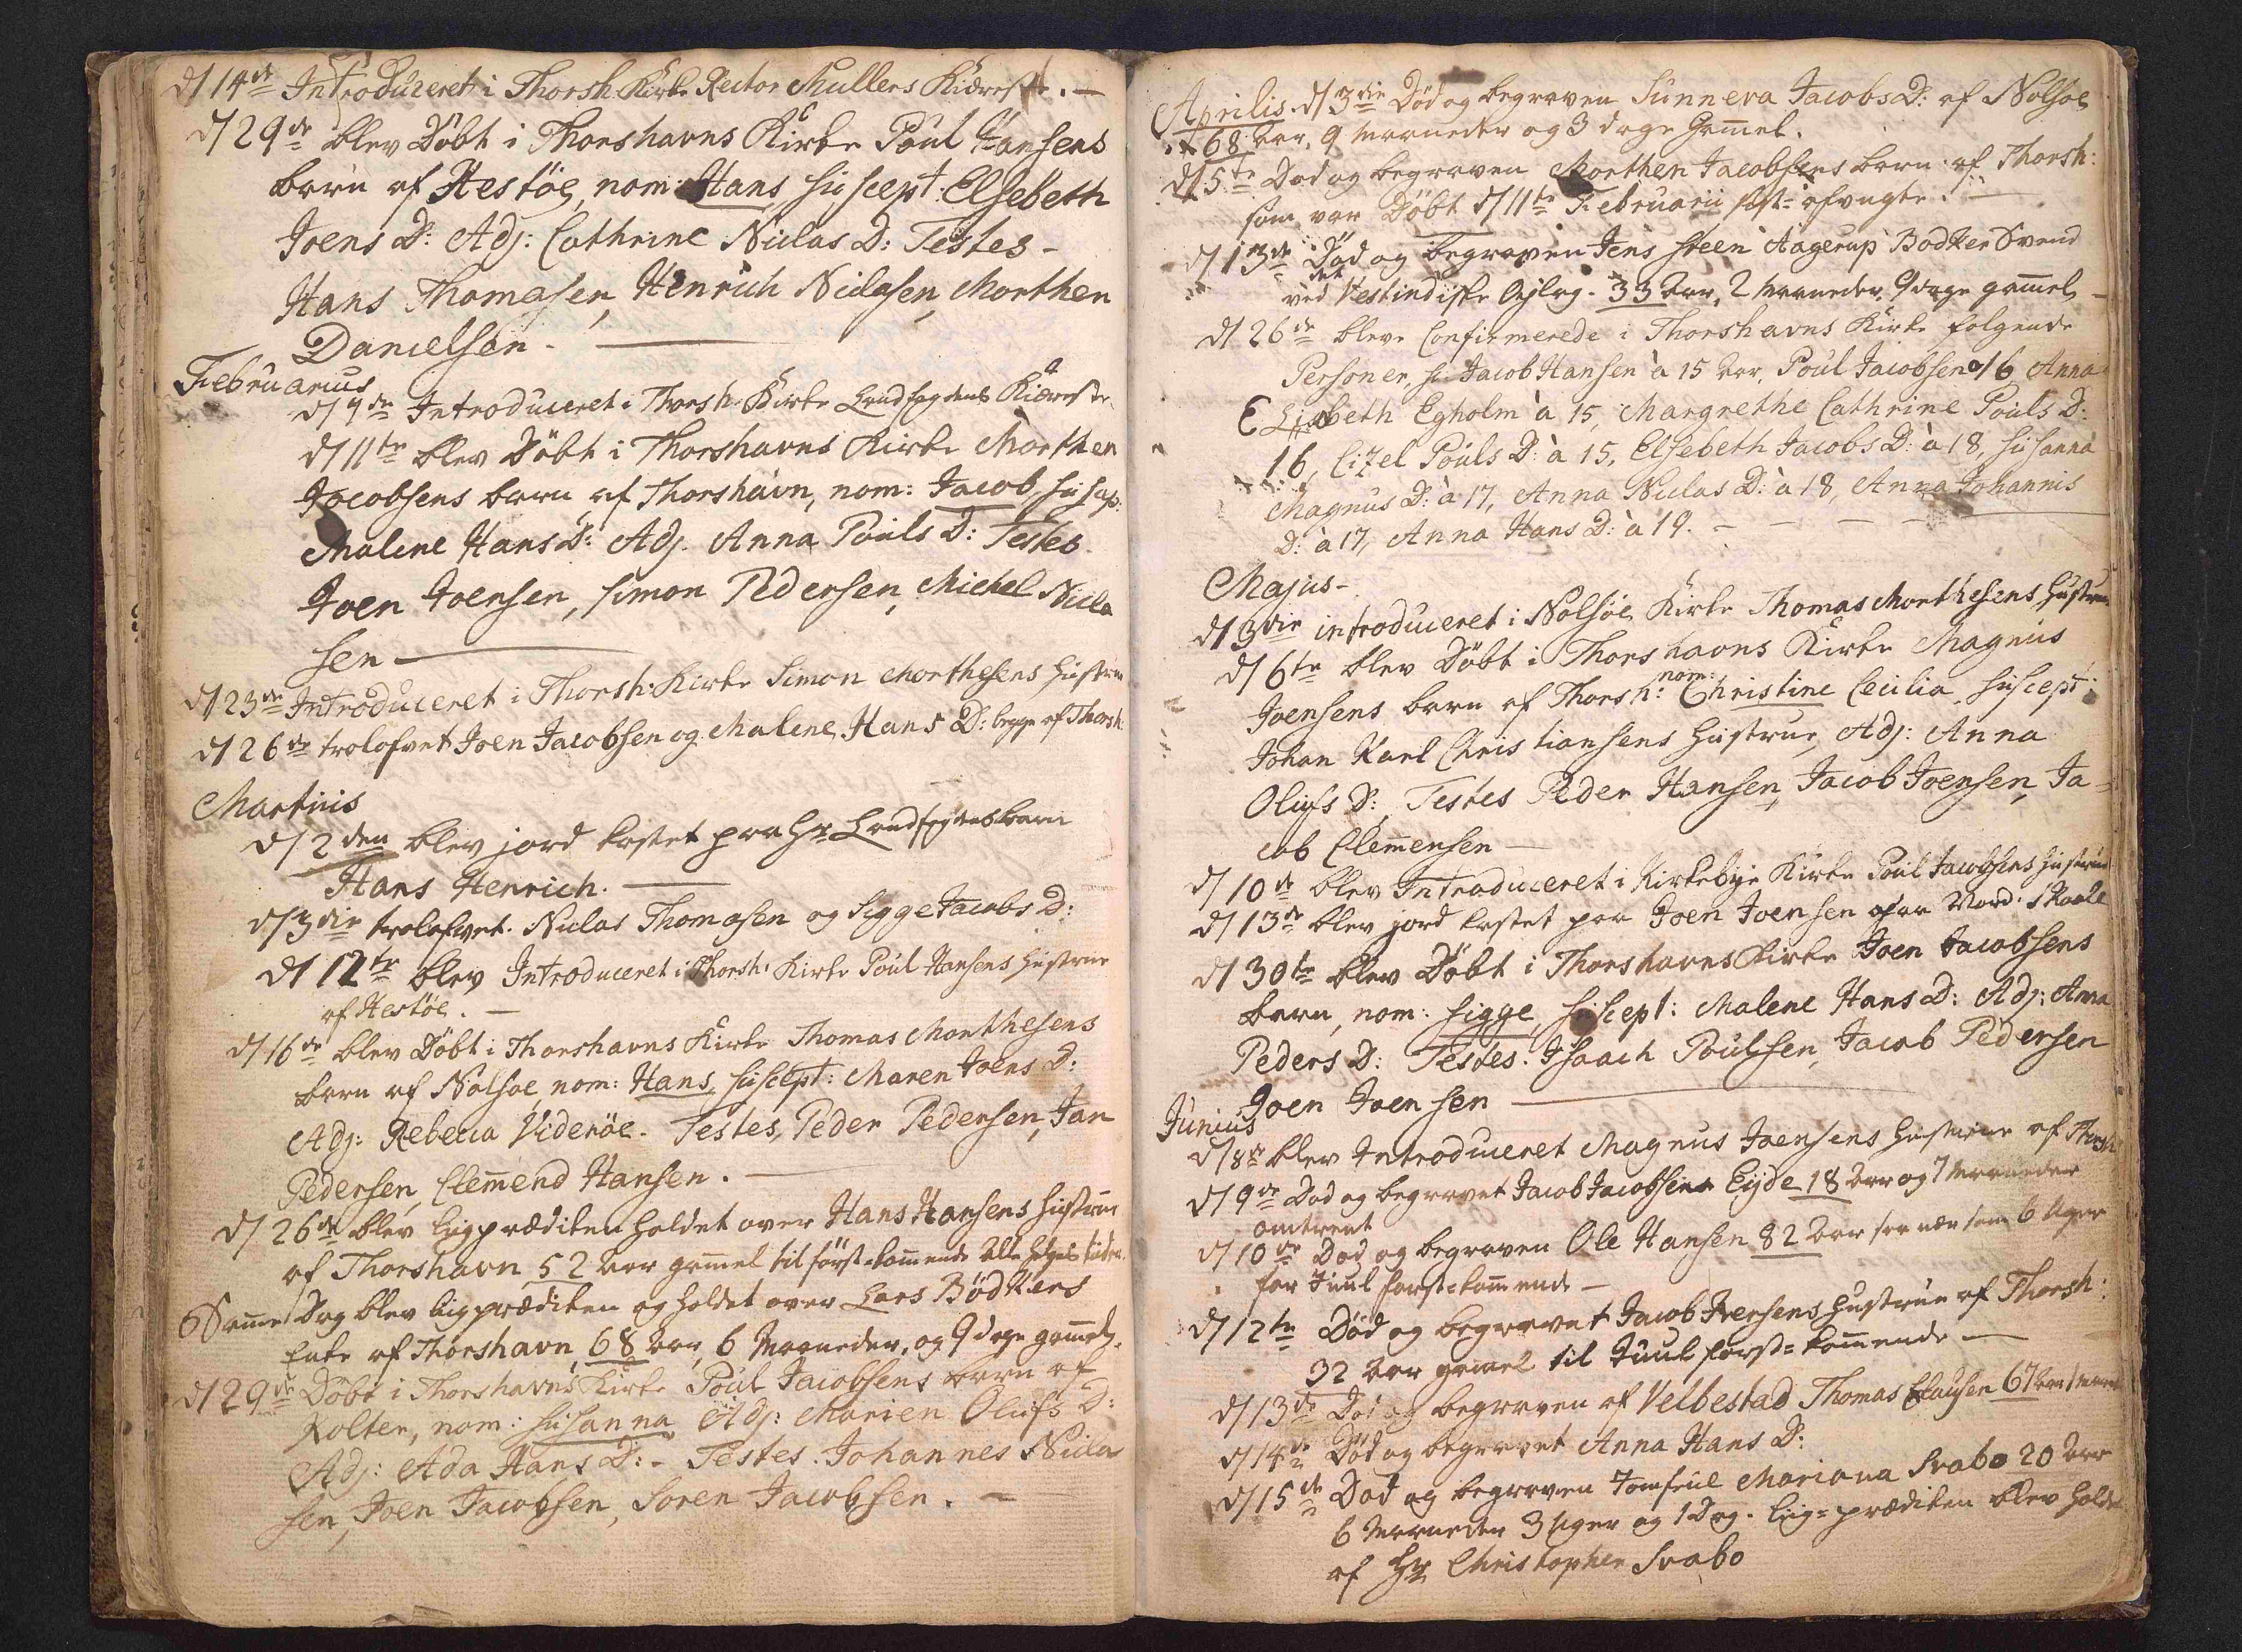 d/14de Introduceret i Thorsh: Kirke Rector Mullers Kiæreste. —
d/29de blev Döbt i Thorshavns Kirke Poul Hansens
barn af Hestöe, nom: Hans, suscept: Elsebeth
Joens D: Adj: Cathrine Niclas D: Testes –
Hans Thomasen, Henrich Niclasen, Morthen
Danielsen. —
Februarius
d/4de Introduceret i Thorsh: Kirke Landfogdens Kiæreste
d/11te blev Döbt i Thorshavns Kirke Morthen
Jacobsens barn af Thorshavn, nom: Jacob, suscep:
Malene Hans D: Adj. Anna Pouls D: Testes
Joen Joensen, Simon Pedersen, Michel Nicla
sen —
d/23de Introduceret i Thorsh: Kirke Simon Morthesens Hustrue
d/26de trolofvet Joen Jacobsen og Malene Hans D: begge af Thorsh:
Martius
d/2den blev jord kastet paa Hr Landfogdens barn
Hans Henrich. —
d/3die trolofvet. Niclas Thomasen og Sigge Jacobs D:
d/12te blev Introduceret i Thorsh: Kirke Poul Hansens Hustrue
af Hestöe. —
d/16de blev Döbt i Thorshavns Kirke Thomas Morthesens
barn af Nolsoe, nom: Hans, suscept: Maren Joens D:
Adj: Rebecca Videröe. Testes, Peder Pedersen, Jan
Pedersen, Clemend Hansen. —
d/26de blev Liigprædiken holdet over Hans Hansens Hustrue
af Thorshavn 52 Aar gammel til först-kommende Alle helgens tider.
Samme Dag blev Liigprædiken og holdet over Lars Bödkers
Enke af Thorshavn, 68 Aar, 6 Maaneder, og 9 dage gammel.
d/29de Döbt i Thorshavns Kirke Poul Jacobsens barn af
Kolter, nom: Susanna, Adj: Marien Olufs D:
Adj: Ada Hans D: – Testes. Johannes Nicla
sen, Joen Jacobsen, Soren Jacobsen. —
Aprilis. d/3die Död og begraven Sunneva Jacobs D: af Nolsoe
68 Aar, 9 Maaneder og 3 dage Gammel.
d/5te Död og begraven Morthen Jacobsens barn af Thorsh:
som var Döbt d/11te Februarii sidst-afvigte. —
d/13de Död og begraven Jens Steen Aagerup Bödker Svend
ved det Vestindiske Oplag. 33 Aar, 2 Maaneder, 9 dage gammel —
d/26de bleve Confirmerede i Thorshavns Kirke folgende
Personer, Jacob Hansen à 15 Aar, Poul Jacobsen à 16 Anna
Elisabeth Egholm à 15, Margrethe Cathrine Pouls D:
16, Cizel Pouls D: à 15, Elsebeth Jacobs D: à 18, Susanna
Magnus D: à 17, Anna Niclas D: à 18, Anna Johannis
D: à 17, Anna Hans D: à 19. — — — —
Majus –
d/3die introduceret i Nolsöe Kirke Thomas Morthesens Hustrue
d/6te blev Döbt i Thorshavns Kirke Magnus
Joensens barn af Thorsh: nom: Christine Cecilia, suscept:
Johan Karl Christiansens Hustrue, Adj: Anna
Olufs D:, Testes Peder Hansen, Jacob Joensen, Ja-
cob Clemensen —
d/10de blev Introduceret i Kirkebye Kirke Poul Jacobsens Hustrue
d/13de blev jord kastet paa Joen Joensen Nord. Skaale
d/30te blev Döbt i Thorshavns Kirke Joen Jacobsens
barn, nom: Sigge, suscept: Malene Hans D: Adj: Anna
Peders D: Testes. Isaach Poulsen, Jacob Pedersen
Joen Joensen —
Junius
d/8de blev Introduceret Magnus Joensens Hustrue af Thorsh:
d/9de Död og begravet Jacob Jacobsen Eijde 18 Aar og 7 Maaneder
omtrent
d/10de Död og begraven Ole Hansen 82 Aar saa nær som 6 Uger
for Juul forstkommende —
d/12te Död og begravet Jacob Iversens Hustrue af Thorsh:
32 Aar gammel til Juul forst-kommende —
d/13de Död og begraven af Velbestad Thomas Clausen 67 Aar 1 Maaned
d/14de Död og begravet Anna Hans D:
d/15de Död og begraven Jomfrue Mariana Svabo 20 Aar
6 Maaneder 3 Uger og 1 Dag. Liig-prædiken blev holdt
af Hr Christopher Svabo